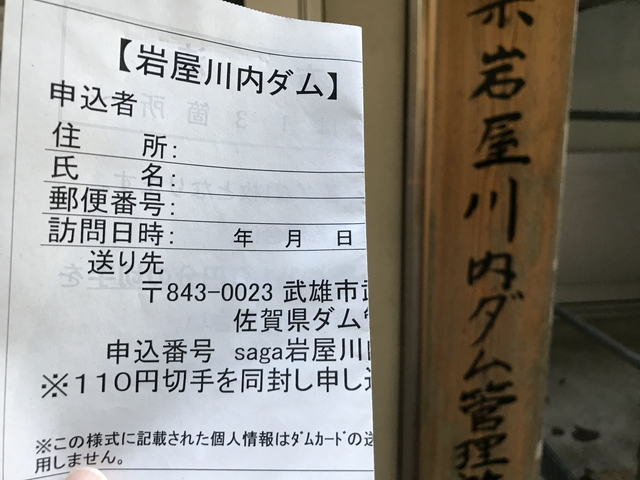 【岩屋川内ダム】
申込者
住　所：
氏　名：
郵便番号：
訪問日時：　年　月　日
送り先
〒843-0023 武雄市武
佐賀県ダム
申込番号 saga岩屋川
※110円切手を同封し申し込
※この様式に記載された個人情報はダムカードの送
用しません。
岩屋川内ダム管理